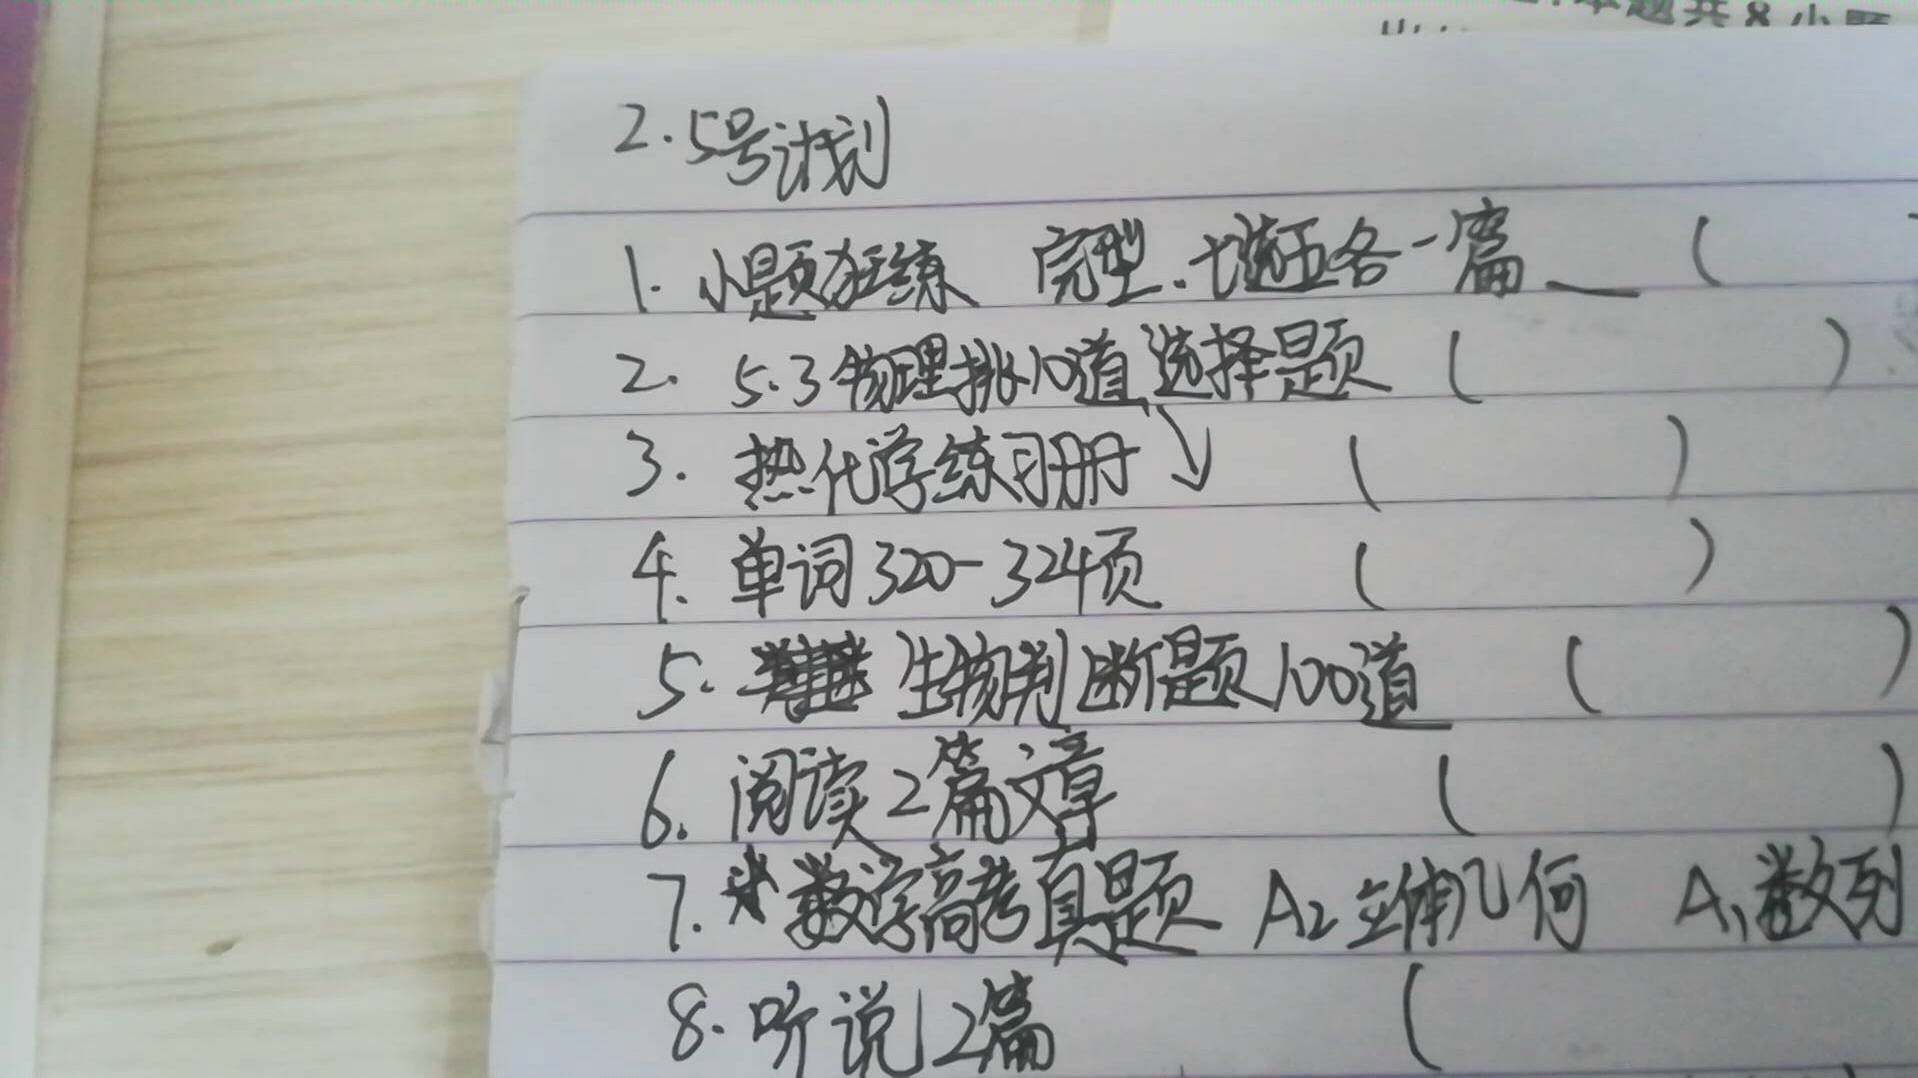 本题共8小题
2.5号计划
1. 小题狂练 完型、七选五各一篇 __ (
2. 5.3物理挑10道选择题 ( )
3. 热化学练习册 ( )
4. 单词320-324页 ( )
5. 生物判断题100道 ( )
6. 阅读2篇文章 ( )
7. 数学高考真题 A2立体几何 A1数列
8. 听说2篇 (